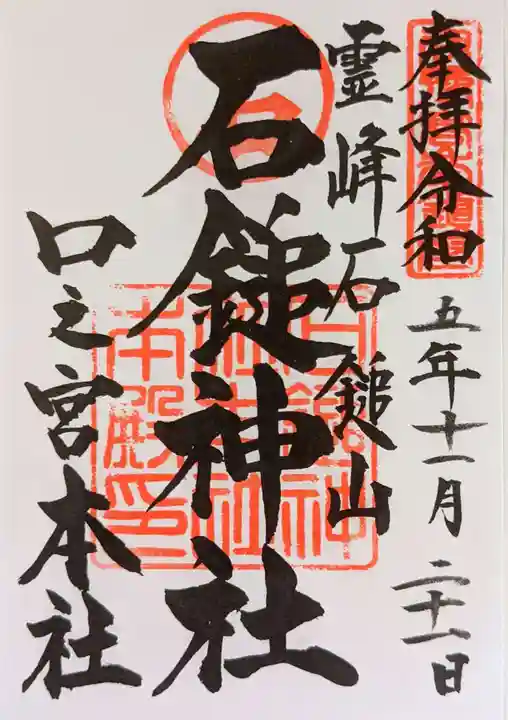 奉拝令和五年十一月二十一日
霊峰石鎚山
石鎚神社
口之宮本社